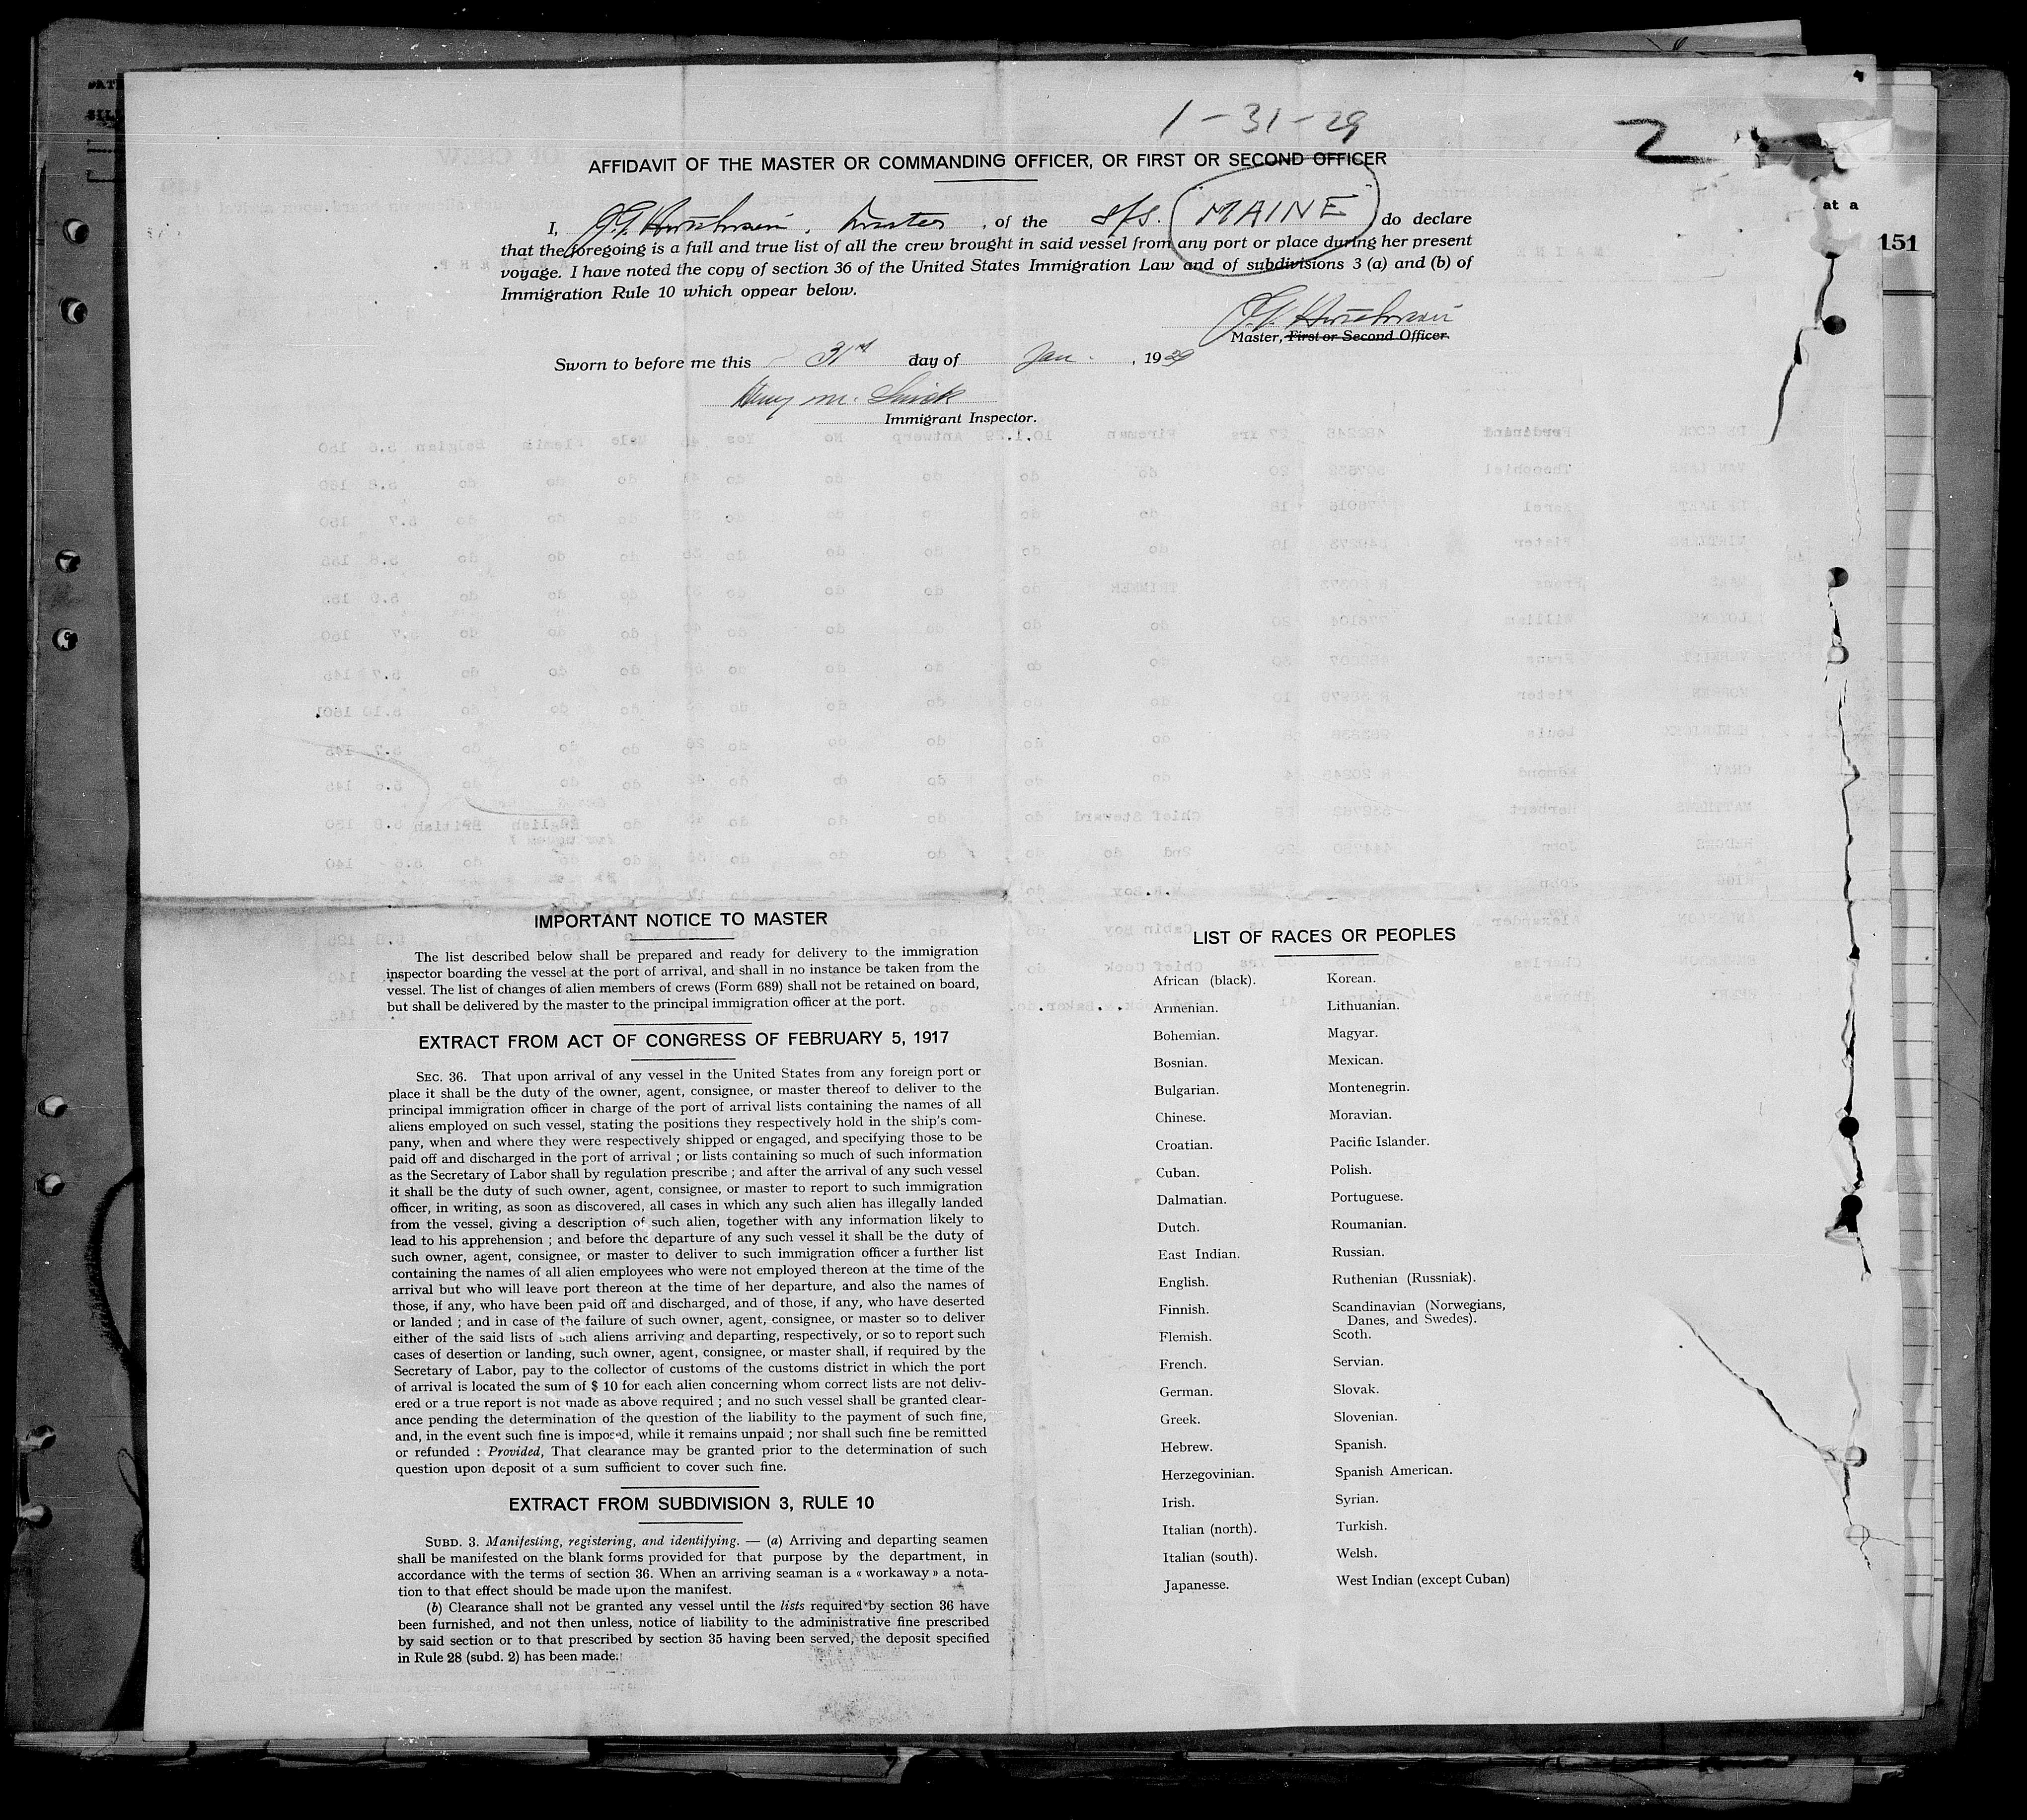 1-31-29
2
AFFIDAVIT OF THE MASTER OR COMMANDING OFFICER, OR FIRST OR SECOND OFFICER
I, master, of the S/S. "MAINE" do declare
that the foregoing is a full and true list of all the crew brought in said vessel from any port or place during her present
voyage. I have noted the copy of section 36 of the United States Immigration Law and of subdivisions 3 (a) and (b) of
Immigration Rule 10 which oppear below.
Master, First or Second Officer.
Sworn to before me this 31st day of Jan. , 1929
Henry M.
Immigrant Inspector.
at a
151
IMPORTANT NOTICE TO MASTER
The list described below shall be prepared and ready for delivery to the immigration
inspector boarding the vessel at the port of arrival, and shall in no instance be taken from the
vessel. The list of changes of alien members of crews (Form 689) shall not be retained on board,
but shall be delivered by the master to the principal immigration officer at the port.
EXTRACT FROM ACT OF CONGRESS OF FEBRUARY 5, 1917
SEC. 36. That upon arrival of any vessel in the United States from any foreign port or
place it shall be the duty of the owner, agent, consignee, or master thereof to deliver to the
principal immigration officer in charge of the port of arrival lists containing the names of all
aliens employed on such vessel, stating the positions they respectively hold in the ship's com-
pany, when and where they were respectively shipped or engaged, and specifying those to be
paid off and discharged in the port of arrival ; or lists containing so much of such information
as the Secretary of Labor shall by regulation prescribe ; and after the arrival of any such vessel
it shall be the duty of such owner, agent, consignee, or master to report to such immigration
officer, in writing, as soon as discovered, all cases in which any such alien has illegally landed
from the vessel, giving a description of such alien, together with any information likely to
lead to his apprehension ; and before the departure of any such vessel it shall be the duty of
such owner, agent, consignee, or master to deliver to such immigration officer a further list
containing the names of all alien employees who were not employed thereon at the time of the
arrival but who will leave port thereon at the time of her departure, and also the names of
those, if any, who have been paid off and discharged, and of those, if any, who have deserted
or landed ; and in case of the failure of such owner, agent, consignee, or master so to deliver
either of the said lists of such aliens arriving and departing, respectively, or so to report such
cases of desertion or landing, such owner, agent, consignee, or master shall, if required by the
Secretary of Labor, pay to the collector of customs of the customs district in which the port
of arrival is located the sum of $ 10 for each alien concerning whom correct lists are not deliv-
ered or a true report is not made as above required ; and no such vessel shall be granted clear-
ance pending the determination of the question of the liability to the payment of such fine,
and, in the event such fine is imposed, while it remains unpaid ; nor shall such fine be remitted
or refunded : Provided, That clearance may be granted prior to the determination of such
question upon deposit of a sum sufficient to cover such fine.
EXTRACT FROM SUBDIVISION 3, RULE 10
SUBD. 3. Manifesting, registering, and identifying. — (a) Arriving and departing seamen
shall be manifested on the blank forms provided for that purpose by the department, in
accordance with the terms of section 36. When an arriving seaman is a « workaway » a nota-
tion to that effect should be made upon the manifest.
(b) Clearance shall not be granted any vessel until the lists required by section 36 have
been furnished, and not then unless, notice of liability to the administrative fine prescribed
by said section or to that prescribed by section 35 having been served, the deposit specified
in Rule 28 (subd. 2) has been made.
LIST OF RACES OR PEOPLES
African (black).
Armenian.
Bohemian.
Bosnian.
Bulgarian.
Chinese.
Croatian.
Cuban.
Dalmatian.
Dutch.
East Indian.
English.
Finnish.
Flemish.
French.
German.
Greek.
Hebrew.
Herzegovinian.
Irish.
Italian (north).
Italian (south).
Japanesse.
Korean.
Lithuanian.
Magyar.
Mexican.
Montenegrin.
Moravian.
Pacific Islander.
Polish.
Portuguese.
Roumanian.
Russian.
Ruthenian (Russniak).
Scandinavian (Norwegians,
Danes, and Swedes).
Scoth.
Servian.
Slovak.
Slovenian.
Spanish.
Spanish American.
Syrian.
Turkish.
Welsh.
West Indian (except Cuban)